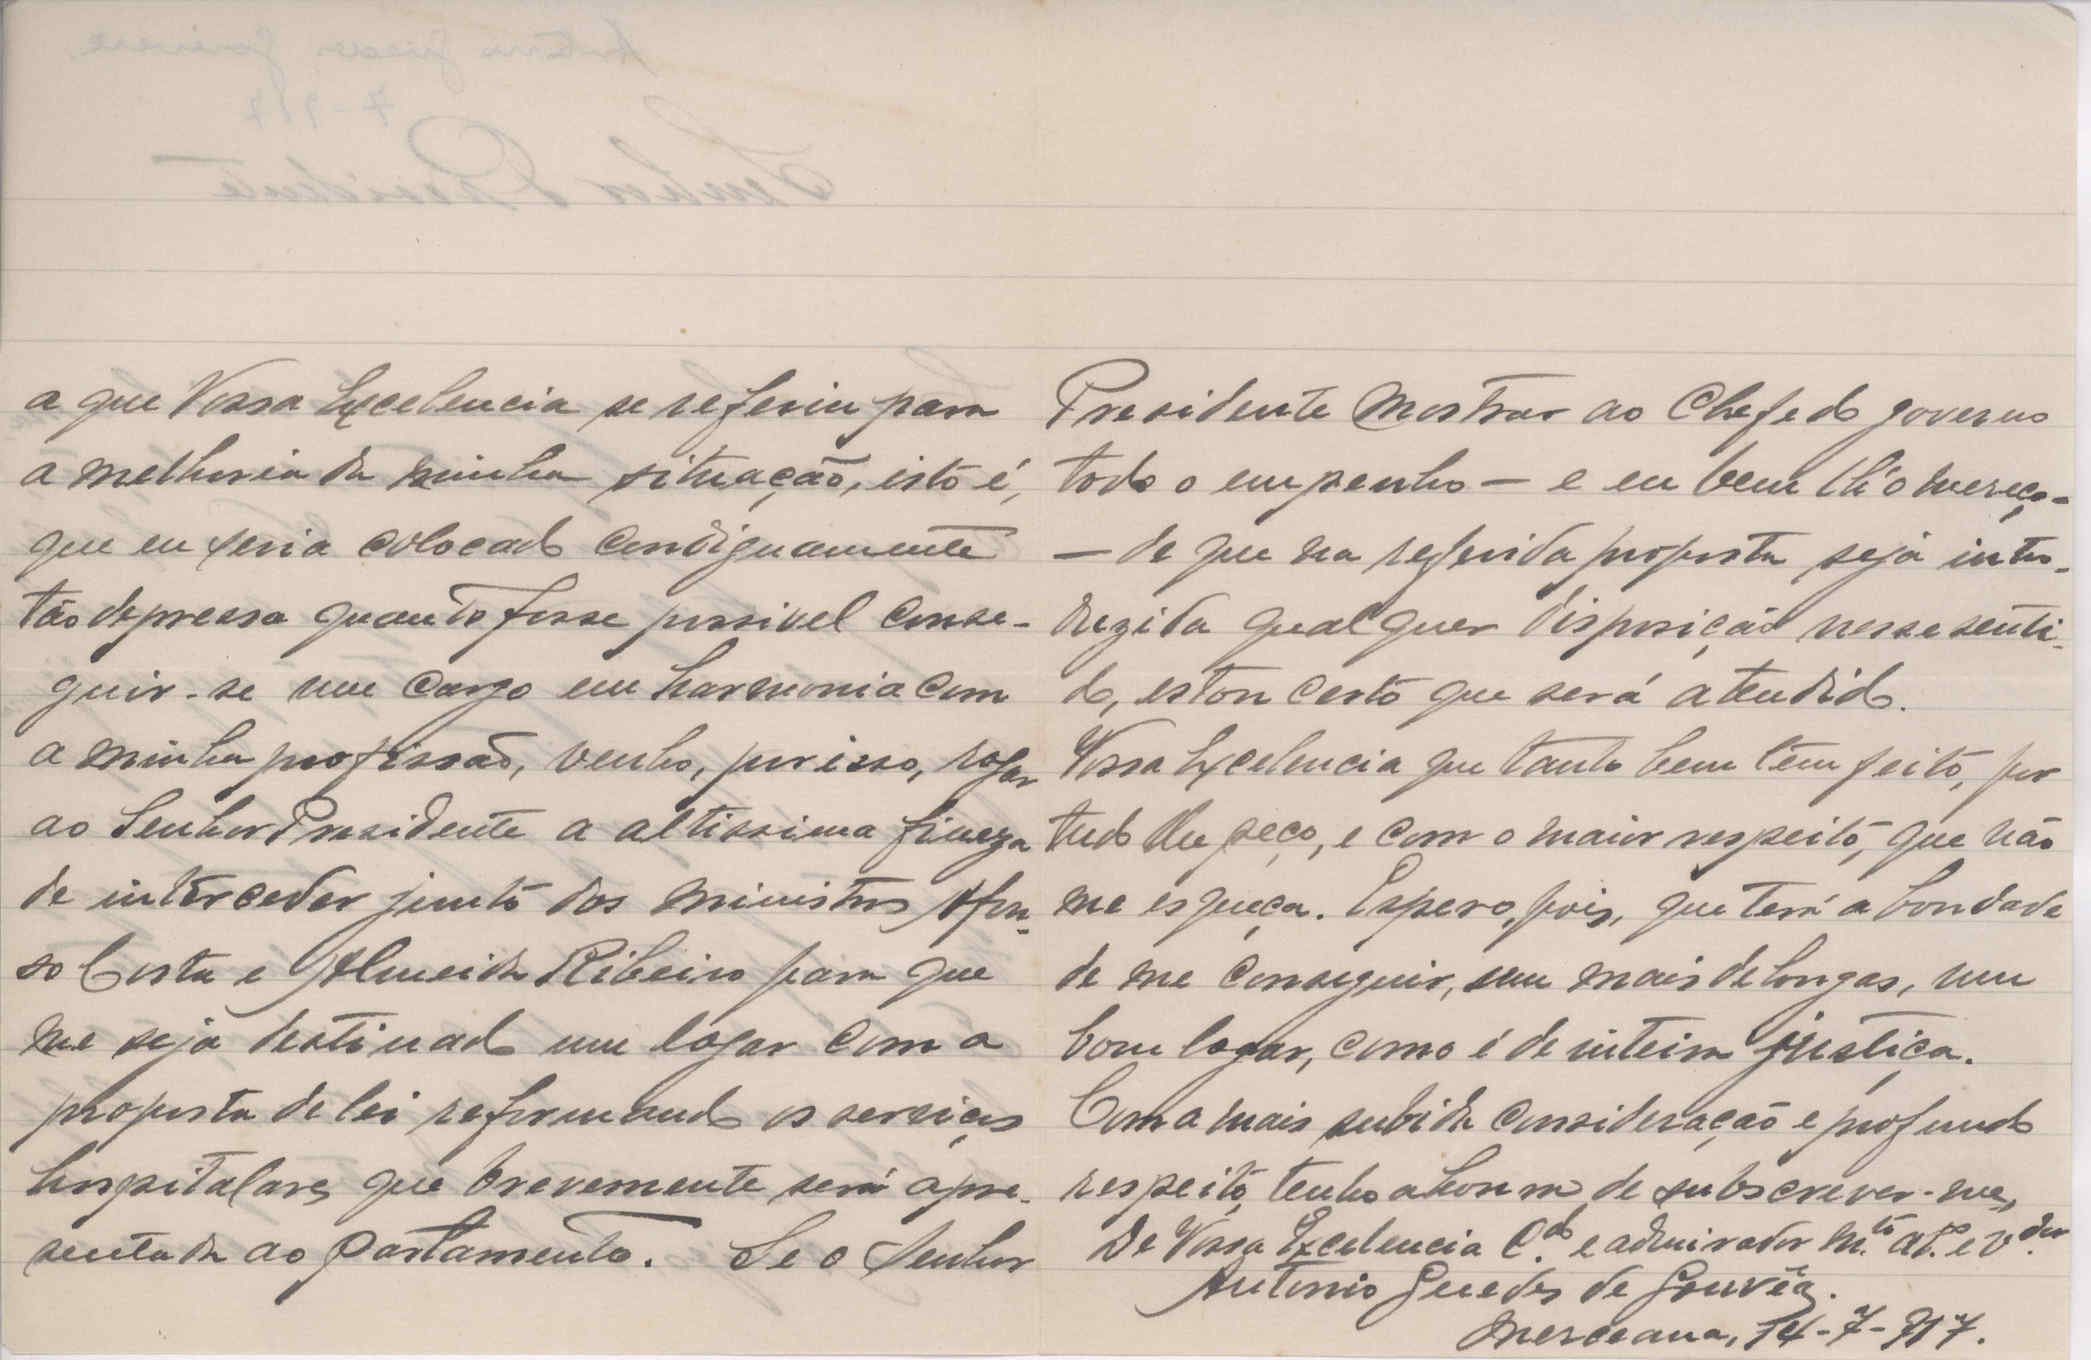 a que Vossa Excelencia se referiu para
a melhoria da minha situação, isto é,
que eu seria colocado condignamente
tão depressa quanto fosse possivel conse-
guir-se um cargo em harmonia com
a minha profissão, venho, por isso, rogar
ao Senhor Presidente a altissima fineza
de interceder junto dos ministros Afon-
so Costa e Almeida Ribeiro para que
me seja destinado um logar com a
proposta de lei reformando os serviços
hospitalares que brevemente será apre-
sentada ao parlamento. Se o Senhor
Presidente mostrar ao Chefe do governo
todo o empenho — e eu bem lh'o mereço -
— de que na referida proposta seja intro-
duzida qualquer disposição nesse senti-
do, estou certo que será atendido.
Vossa Excelencia que tanto bem tem feito, por
tudo lhe peço, e com o maior respeito, que não
me esqueça. Espero, pois, que terá a bondade
de me conseguir, sem mais delongas, um
bom logar, como é de inteira justiça.
Com a mais subida consideração e profundo
respeito, tenho a honra de subscrever-me,
De Vossa Excelencia C.do e admirador m.to at.º e v.dor
Antonio Guedes de Gouvêa.
Merceana, 14-7-917.
Senhor Presidente